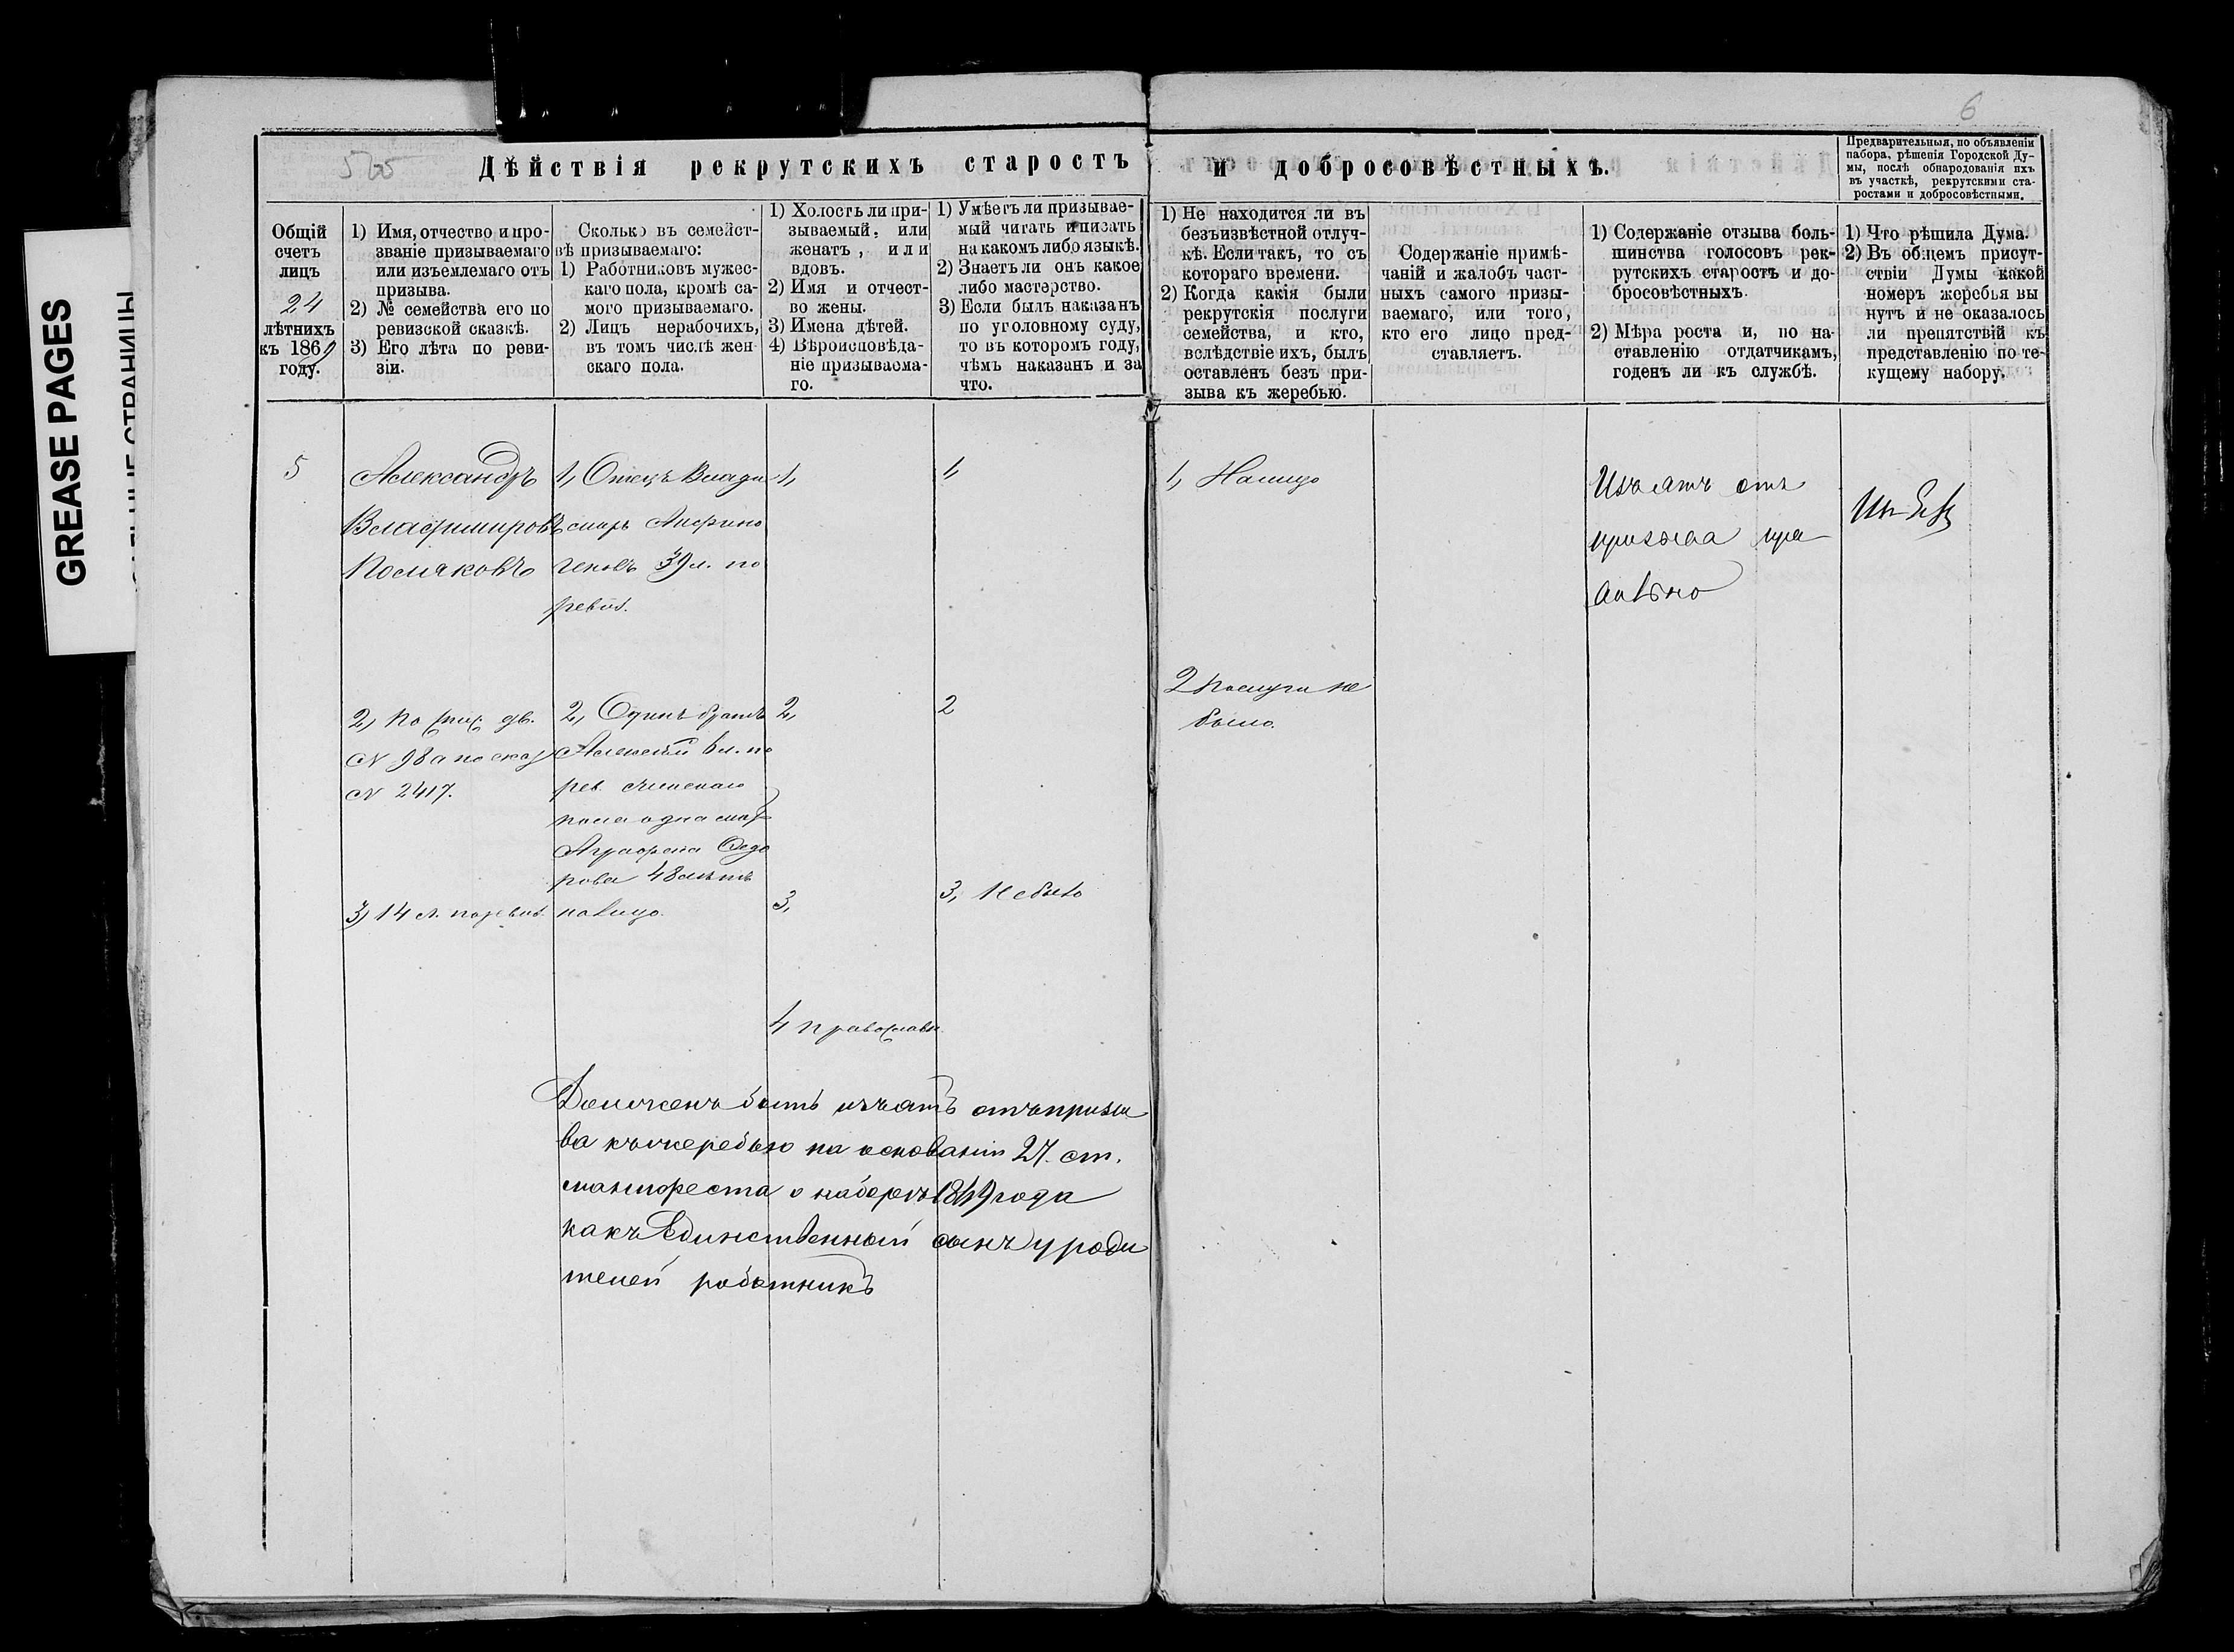 GREASE PAGES
6
Дѣйствія рекрутскихъ старостъ и добросовѣстныхъ.
Предварительныя, по объявленіи
набора, рѣшенія Городской Ду-
мы, послѣ обнародованія ихъ
въ участкѣ, рекрутскими ста-
ростами и добросовѣстными.
Общій
счетъ
лицъ
24
лѣтнихъ
къ 1869
году.
1) Имя, отчество и про-
званіе призываемаго
или изъемлемаго отъ
призыва.
2) № семейства его по
ревизской сказкѣ.
3) Его лѣта по реви-
зіи.
Сколько въ семейст-
вѣ призываемаго:
1) Работниковъ мужес-
каго пола, кромѣ са-
мого призываемаго.
2) Лицъ нерабочихъ,
въ томъ числѣ жен-
скаго пола.
1) Холостъ ли при-
зываемый, или
женатъ, или
вдовъ.
2) Имя и отчест-
во жены.
3) Имена дѣтей.
4) Вѣроисповѣда-
ніе призываема-
го.
1) Умѣетъ ли призывае-
мый читать и писать
на какомъ либо языкѣ.
2) Знаетъ ли онъ какое
либо мастерство.
3) Если былъ наказанъ
по уголовному суду,
то въ которомъ году,
чѣмъ наказанъ и за
что.
1) Не находится ли въ
безъизвѣстной отлуч-
кѣ. Если такъ, то съ
котораго времени.
2) Когда какія были
рекрутскія послуги
семейства, и кто,
вслѣдствіе ихъ, былъ
оставленъ безъ при-
зыва къ жеребью.
Содержаніе примѣ-
чаній и жалобъ част-
ныхъ самого призы-
ваемаго, или того,
кто его лицо пред-
ставляетъ.
1) Содержаніе отзыва боль-
шинства голосовъ рек-
рутскихъ старостъ и до-
бросовѣстныхъ.
2) Мѣра роста и, по на-
ставленію отдатчикамъ,
годенъ ли къ службѣ.
1) Что рѣшила Дума.
2) Въ общемъ присут-
ствіи Думы какой
номеръ жеребья вы
нутъ и не оказалось
ли препятствій къ
представленію по те-
кущему набору.
5
Александръ
Владимировъ
Поляковъ
2, по
дв.
№ 98 а по сказ
№ 2417.
3, 14 л. по ревиз.
1, Отецъ Влади
миръ Анфино
геновъ 39 л. по
ревиз.
2, Одинъ братъ
Алексѣй 6 л. по
рев. Женскаго
пола одна мать
Аграфена Федо
рова 48 лѣтъ
налицо.
1,
2,
3,
4 православн.
1,
2
3, Не былъ
1, Налицо
2 послуги не
было.
Изъятъ отъ
призыва пра
вильно
Должен быть изъятъ отъ призы
ва къ жеребью на основаніи 27. ст.
манифеста о наборѣ 1849 года
какъ Единственный сынъ у роди
телей работникъ